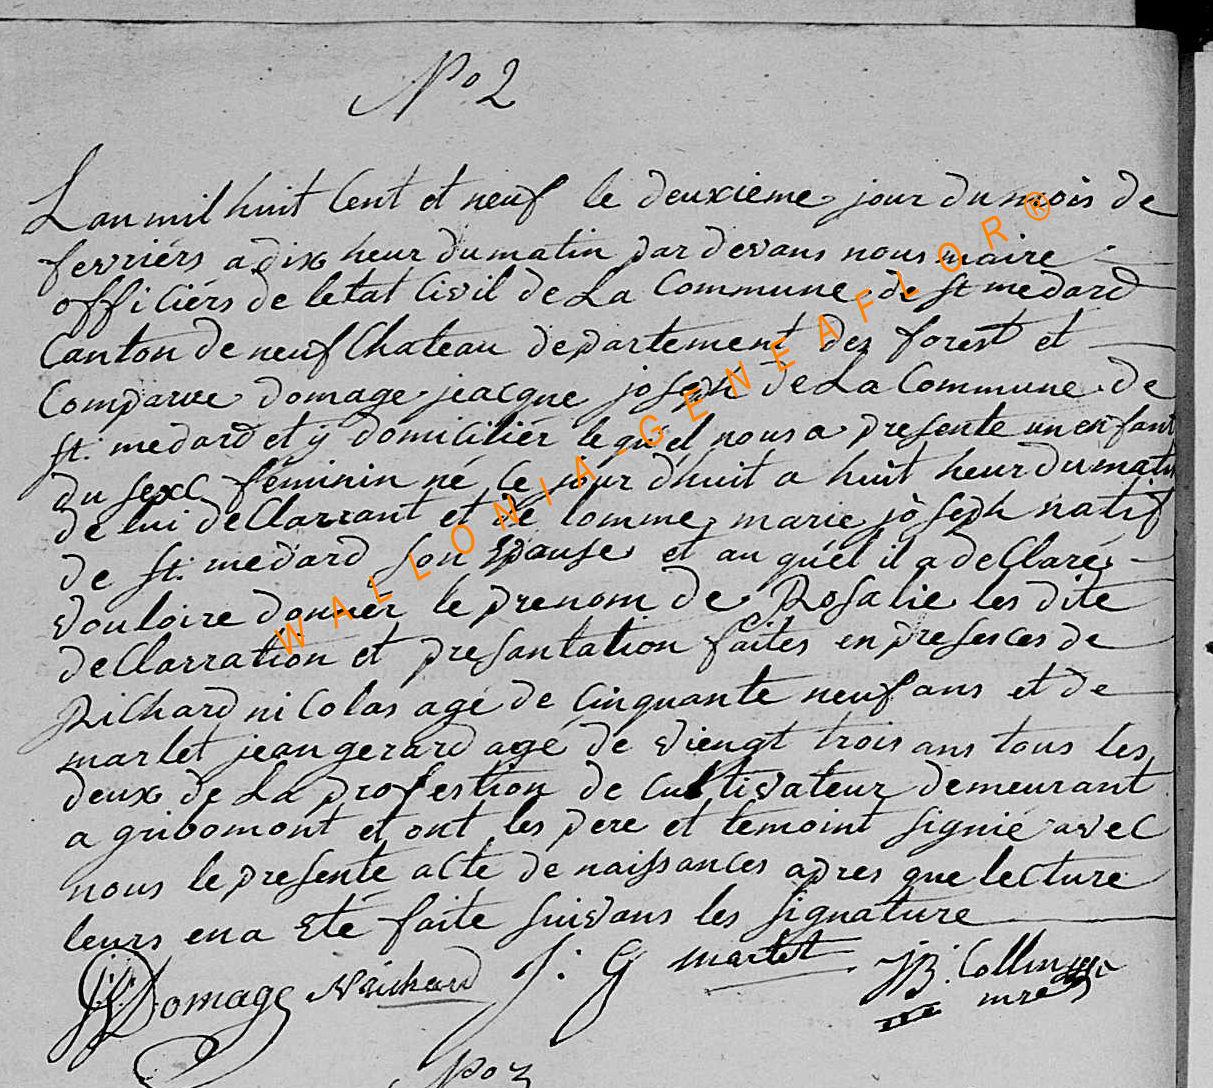 No 2
Lan mil huit Cent et neuf le deuxieme jour du mois de
fevriérs a dix heur du matin par devans nous maire
officiérs de letat Civil de La Commune de St medard
Canton de neufChateau departement des forest et
Comparue domage jeacque joseph de La Commune de
st. medard et y domiciliér le quel nous a presente un enfant
du sexe féminin né ce jour dhuit a huit heur du matin
de lui deClarrant et de lomme marie joseph natif
de st. medard son Epause et au quel il a deClarés
vouloire donnér le prenom de Rosalie les dite
deClarration et presantation faites en presences de
Richard nicolas agé de Cinquante neuf ans et de
marlet jean gerard agé de viengt trois ans tous les
deux de La profestion de cultivateur demeurant
a gribomont et ont les pere et temoint signié avec
nous le presente acte de naissances apres que lecture
leurs en a Eté faite suivans les signature
JJDomage NRichard J: G martet JB. Collin mre
No 3
WALLONIA-GENEAFLOR®